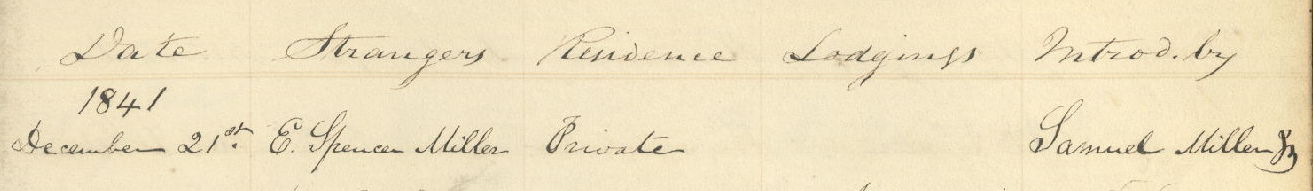 Date Strangers Residence Lodgings Introd. by
1841
December 21st. E. Spencer Miller Private Samuel Miller Jr